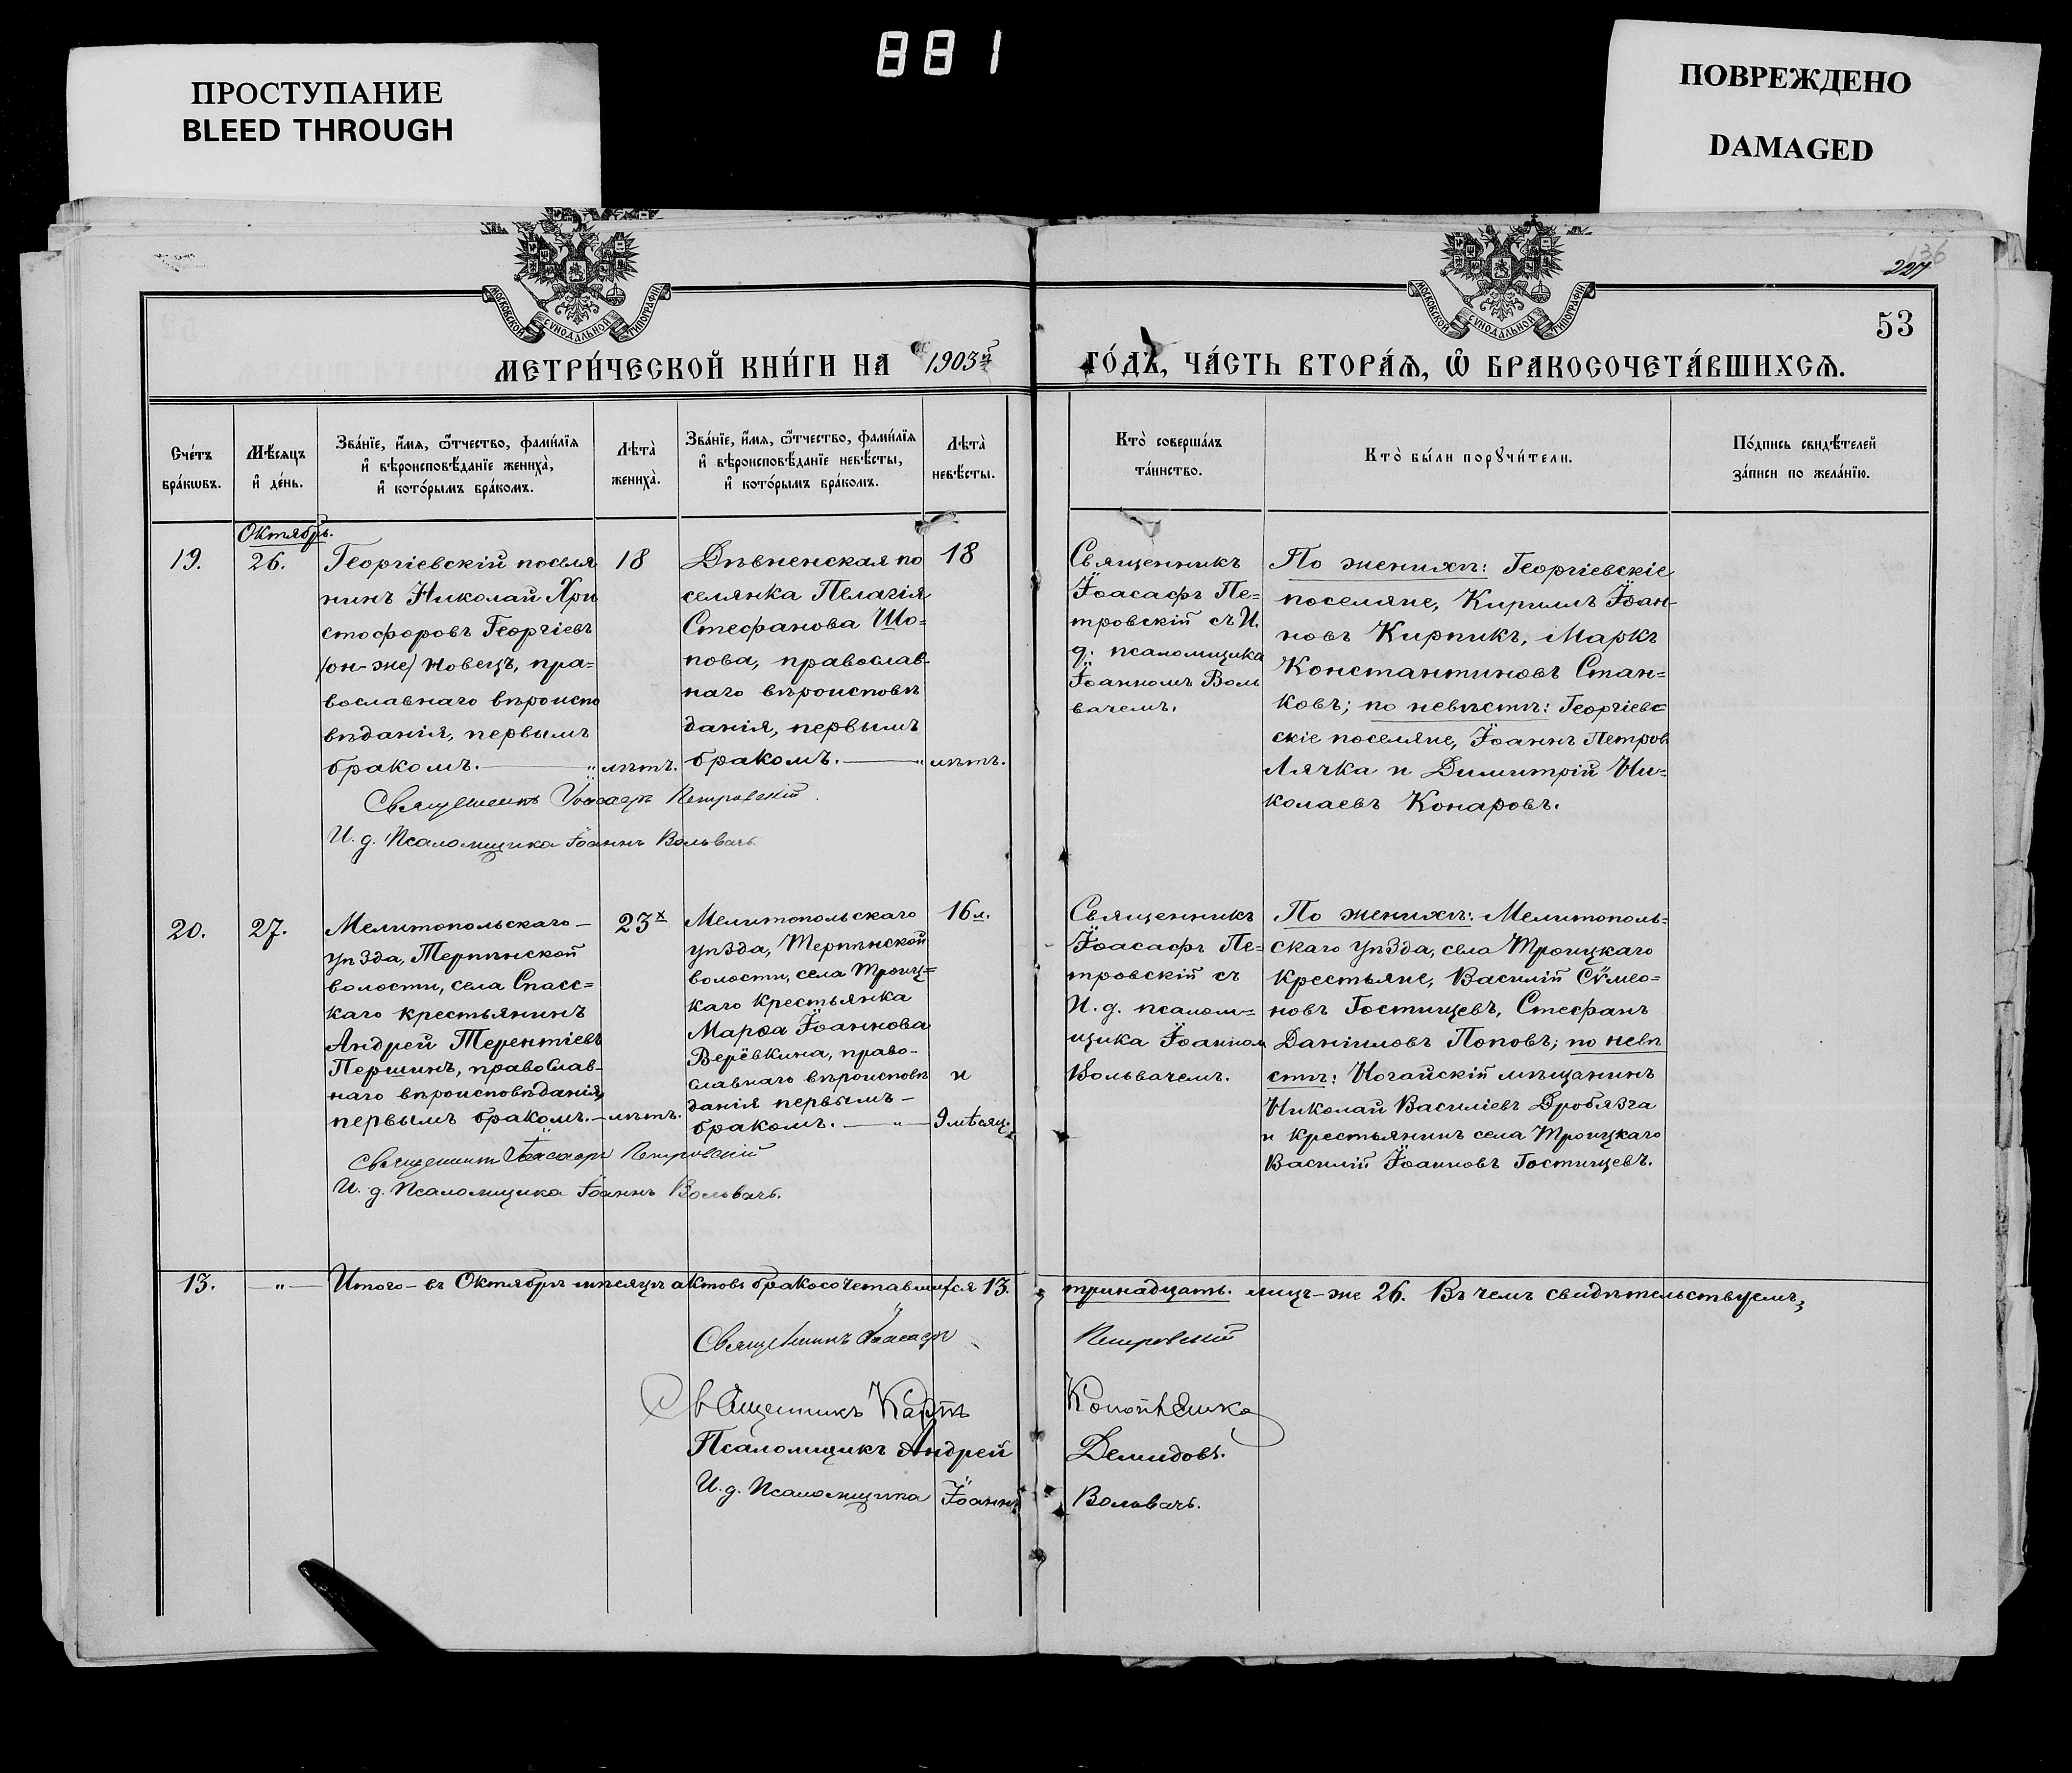 881
ПРОСТУПАНИЕ
BLEED THROUGH
ПОВРЕЖДЕНО
DAMAGED
136
227
53
МОСКОВСКОЙ СѴНОДАЛЬНОЙ ТИПОГРАФІИ
МОСКОВСКОЙ СѴНОДАЛЬНОЙ ТИПОГРАФІИ
МЕТРИ́ЧЕСКОЙ КНИ́ГИ НА 1903й ГО́ДЪ, ЧА́СТЬ ВТОРА́Ѧ, Ѡ҆ БРАКОСОЧЕТА́ВШИХСѦ.
Сче́тъ
бра́кѡвъ.
Мѣ́сѧцъ
и҆ де́нь.
Зва́нїе, и҆́мѧ, ѻ҆́тчество, фами́лїѧ
и҆ вѣроисповѣ́данїе жениха̀,
и҆ кото́рымъ бра́комъ.
Лѣ́та̀
жениха̀.
Зва́нїе, и҆́мѧ, ѻ҆́тчество, фами́лїѧ
и҆ вѣроисповѣ́данїе невѣ́сты,
и҆ кото́рымъ бра́комъ.
Лѣ́та̀
невѣ́сты.
Кто̀ соверша́лъ
та́инство.
Кто̀ бы́ли порꙋчи́тели.
По́дпись свидѣ́телей
за́писи по жела́нїю.
Октябрь.
19.
26.
Георгіевскій поселя
нинъ Николай Хри
стофоровъ Георгіевъ
/он-же/ Новецъ, пра=
вославнаго вѣроиспо
вѣданія, первымъ
бракомъ. —
18
„ лѣтъ.
Дѣвненская по
селянка Пелагія
Стефанова Шо=
пова, православ-
наго вѣроисповѣ
данія, первымъ
бракомъ. —
18
„ лѣтъ.
Священникъ
Іоасафъ Пе=
тровскій съ И.
д. псаломщика
Іоанномъ Воль
вачемъ.
По женихѣ: Георгіевскіе
поселяне, Кириллъ Іоан-
новъ Кирпикъ, Маркъ
Константиновъ Стан=
ковъ; по невѣстѣ: Георгіевс
скіе поселяне, Іоаннъ Петров
Лячка и Димитрій Ни=
колаевъ Конаровъ.
Священникъ Іоасафъ Петровскій.
И. д. Псаломщика Іоаннъ Вольвачъ.
20.
27.
Мелитопольскаго —
уѣзда, Терпѣнской
волости, села Спасс=
каго крестьянинъ
Андрей Терентіевъ
Першинъ, православ-
наго вѣроисповѣданія,
первымъ бракомъ. —
23х
лѣтъ.
Мелитопольскаго
уѣзда, Терпѣнской
волости, села Троиц=
каго крестьянка
Марѳа Іоаннова
Верёвкина, право-
славнаго вѣроисповѣ
данія первымъ —
бракомъ. — „ —
16 л.
и
9 мѣсяц.
Священникъ
Іоасафъ Пе=
тровскій съ
И. д. псалом=
щика Іоанном
Вольвачемъ.
По женихѣ: Мелитополь=
скаго уѣзда, села Троицкаго
крестьяне, Василій Сѵмео=
новъ Гостищевъ, Стефанъ
Даніиловъ Поповъ; по невѣ
стѣ: Ногайскій мѣщанинъ
Николай Василіевъ Дробязга
и крестьянинъ села Троицкаго
Василій Іоанновъ Гостищевъ.
Священникъ Іоасафъ Петровскій
И. д. Псаломщика Іоаннъ Вольвачъ.
13. — „ — Итого — въ Октябрѣ мѣсяцѣ актовъ бракосочетавшихся 13. тринадцать. лицъ-же 26. Въ чемъ свидѣтельствуемъ,
Священникъ Іоасафъ Петровскій
Священникъ Карпъ
Псаломщикъ Андрей Демидовъ.
И. д. Псаломщика Іоаннъ Вольвачъ.